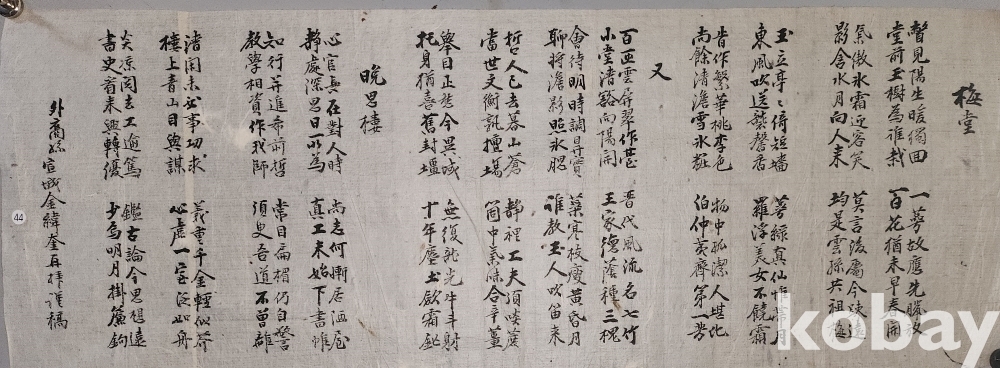 梅堂
聲見陽生暖獨回 一萼故應先臘發
堂前玉樹為誰栽 百花猶未早春開
氣傲氷霜迎客笑 莫言後屬今疎遠
影含水月向人来 均是雲孫共祖梅
玉立亭〻倚短墻 萼綠真仙惟帶月
東風吹送襲馨香 羅浮美女不饒霜
肯作繁華桃李色 物中孤潔人堪比
尚餘清澹雪氷粧 伯仲夷齊第一芳
又
百匝雲屏翠作甚 晉代風流名七竹
小堂清豁向陽開 王家德蔭種三槐
會待明時調鼎實 葉寒枝瘦黃昏月
聊將澹影照氷腮 誰教玉人吹笛来
哲人已去暮山蒼 靜裡工夫須啖蔗
當世文衡孰擅場 箇中氣味合辛薑
舉目正愁今異域 無復龍光牛斗射
托身猶喜舊封壇 十年塵土欲霜
晚思樓
心官長在對人時 尚志何慚居漏屋
靜處深思日以為 真工未始下書帷
知行并進希前哲 常目扁楣仍自警
教學相資作我師 須史吾道不曾離
渚閣未必事功求 義重千金輕似芥
樓上青山日與謀 心虛一室泛如舟
炎凉閱去工逾篤 鑑古論今思想遠
書史看来興轉優 少焉明月掛簾鉤
外裔孫宣城金緯奎再拜謹稿
44
kobay